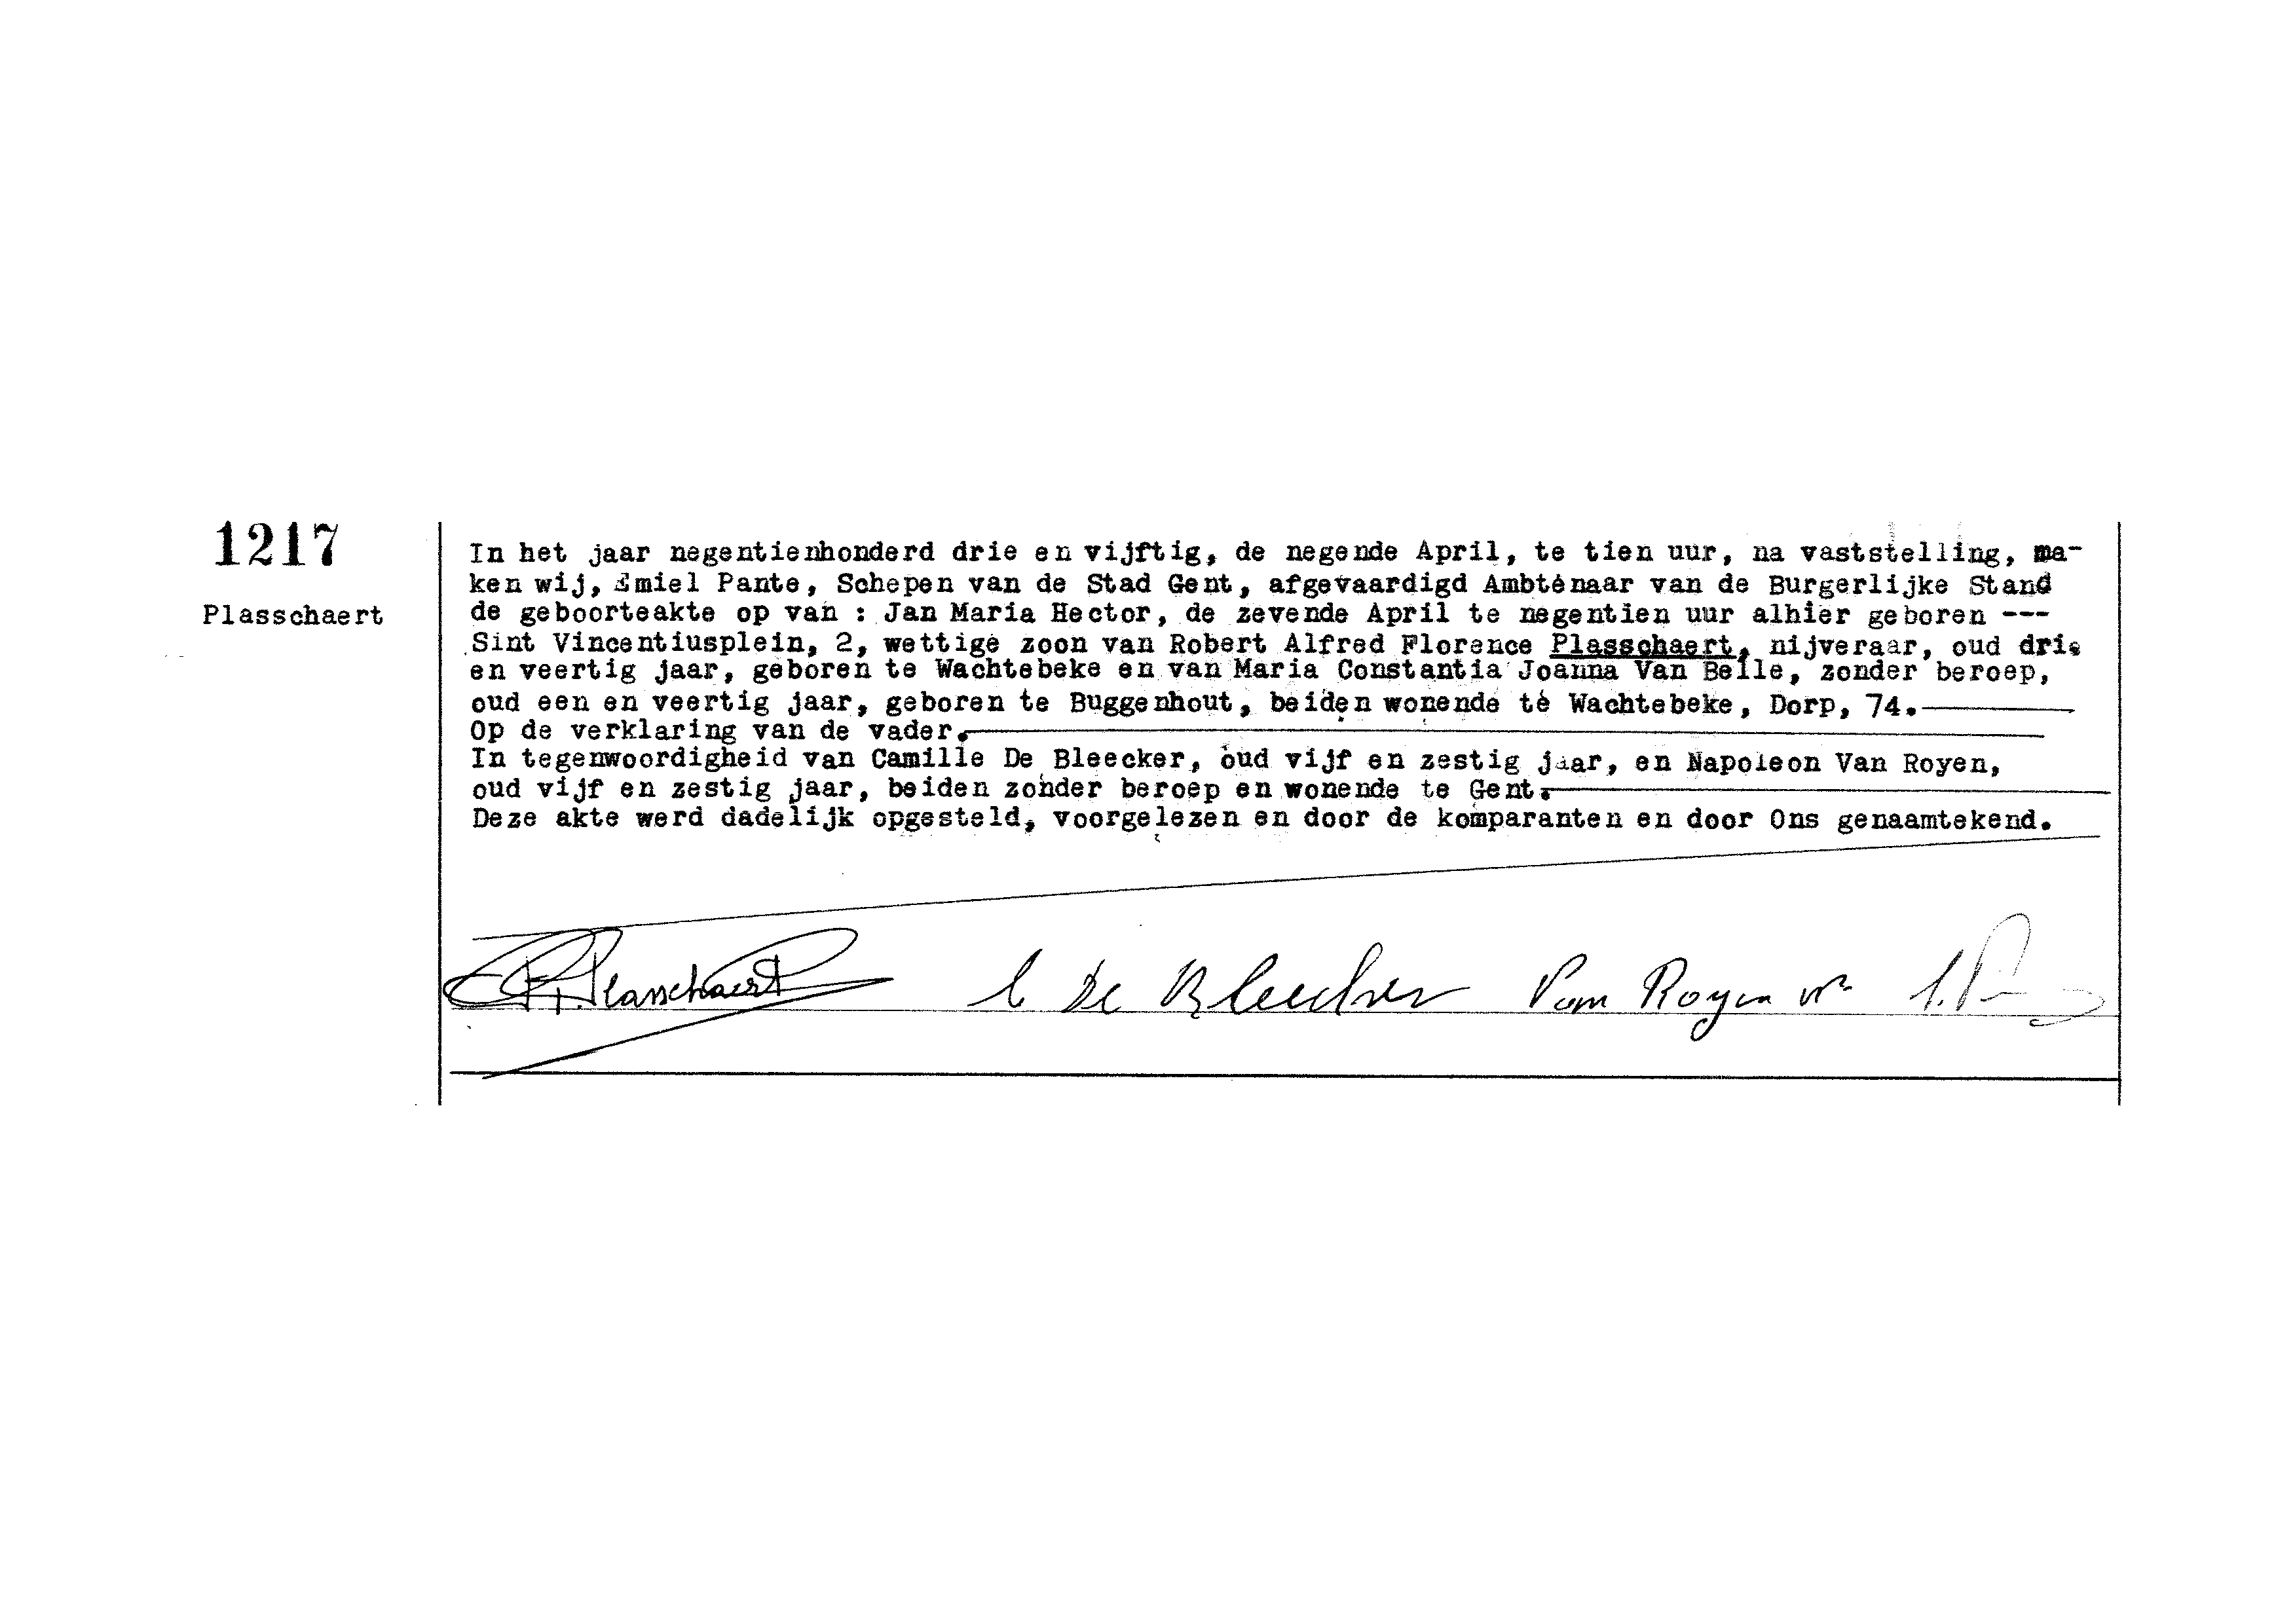 1217
Plasschaert
In het jaar negentienhonderd drie en vijftig, de negende April, te tien uur, na vaststelling, ma-
ken wij, Emiel Pante, Schepen van de Stad Gent, afgevaardigd Ambtenaar van de Burgerlijke Stand
de geboorteakte op van : Jan Maria Hector, de zevende April te negentien uur alhier geboren ---
Sint Vincentiusplein, 2, wettige zoon van Robert Alfred Florence Plasschaert, nijveraar, oud drie
en veertig jaar, geboren te Wachtebeke en van Maria Constantia Joanna Van Belle, zonder beroep,
oud een en veertig jaar, geboren te Buggenhout, beiden wonende te Wachtebeke, Dorp, 74.
Op de verklaring van de vader.
In tegenwoordigheid van Camille De Bleecker, oud vijf en zestig jaar, en Napoleon Van Royen,
oud vijf en zestig jaar, beiden zonder beroep en wonende te Gent.
Deze akte werd dadelijk opgesteld, voorgelezen en door de komparanten en door Ons genaamtekend.
Plasschaert C De Bleecker Van Royen